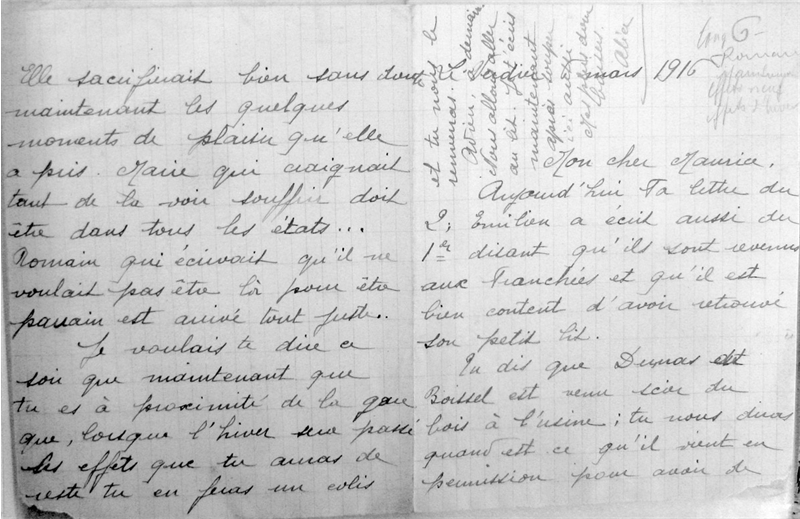 Elle sacrifierait bien sans doute
maintenant les quelques
moments de plaisir qu'elle
a pris. Marie qui craignait
tant de la voir souffrir doit
être dans tous les états...
Romain qui écrivait qu'il ne
voulait pas être là pour être
parrain est arrivé tout juste..
Je voulais te dire ce
soir que maintenant que
tu es à proximité de la gare
que, lorsque l'hiver sera passé
les effets que tu auras de
reste tu en feras un colis
et tu nous le
renverras.
Adieu, à demain
Nous allons aller
au lit. Je t'écris
maintenant
après souper
ici aussi
Alia
Vendredi mars 1916
Romain
effets neuf
Mon cher Maurice,
Aujourd'hui Ta lettre du
2, Emilien a écrit aussi du
1er disant qu'ils sont revenus
aux Tranchées et qu'il est
bien content d'avoir retrouvé
son petit lit.
Tu dis que Dumas et
Boissel est venu scier du
bois à l'usine ; tu nous diras
quand est ce qu'il vient en
permission pour avoir de